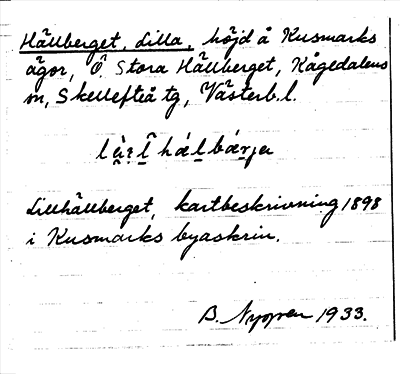 Hällberget, Lilla, höjd å Kusmarks
ägor, Ö. Stora Hällberget, Kågedalens
sn, Skellefteå tg, Västerb. l.
Lillhällberget, kartbeskrivning 1898
i Kusmarks byaskrin.
B. Nygren 1933.